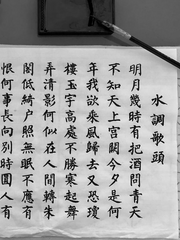 水調歌頭
明月幾時有把酒問青天
不知天上宮闕今夕是何
年我欲乘風歸去又恐瓊
樓玉宇高處不勝寒起舞
弄清影何似在人間轉朱
閣低綺戶照無眠不應有
恨何事長向別時圓人有